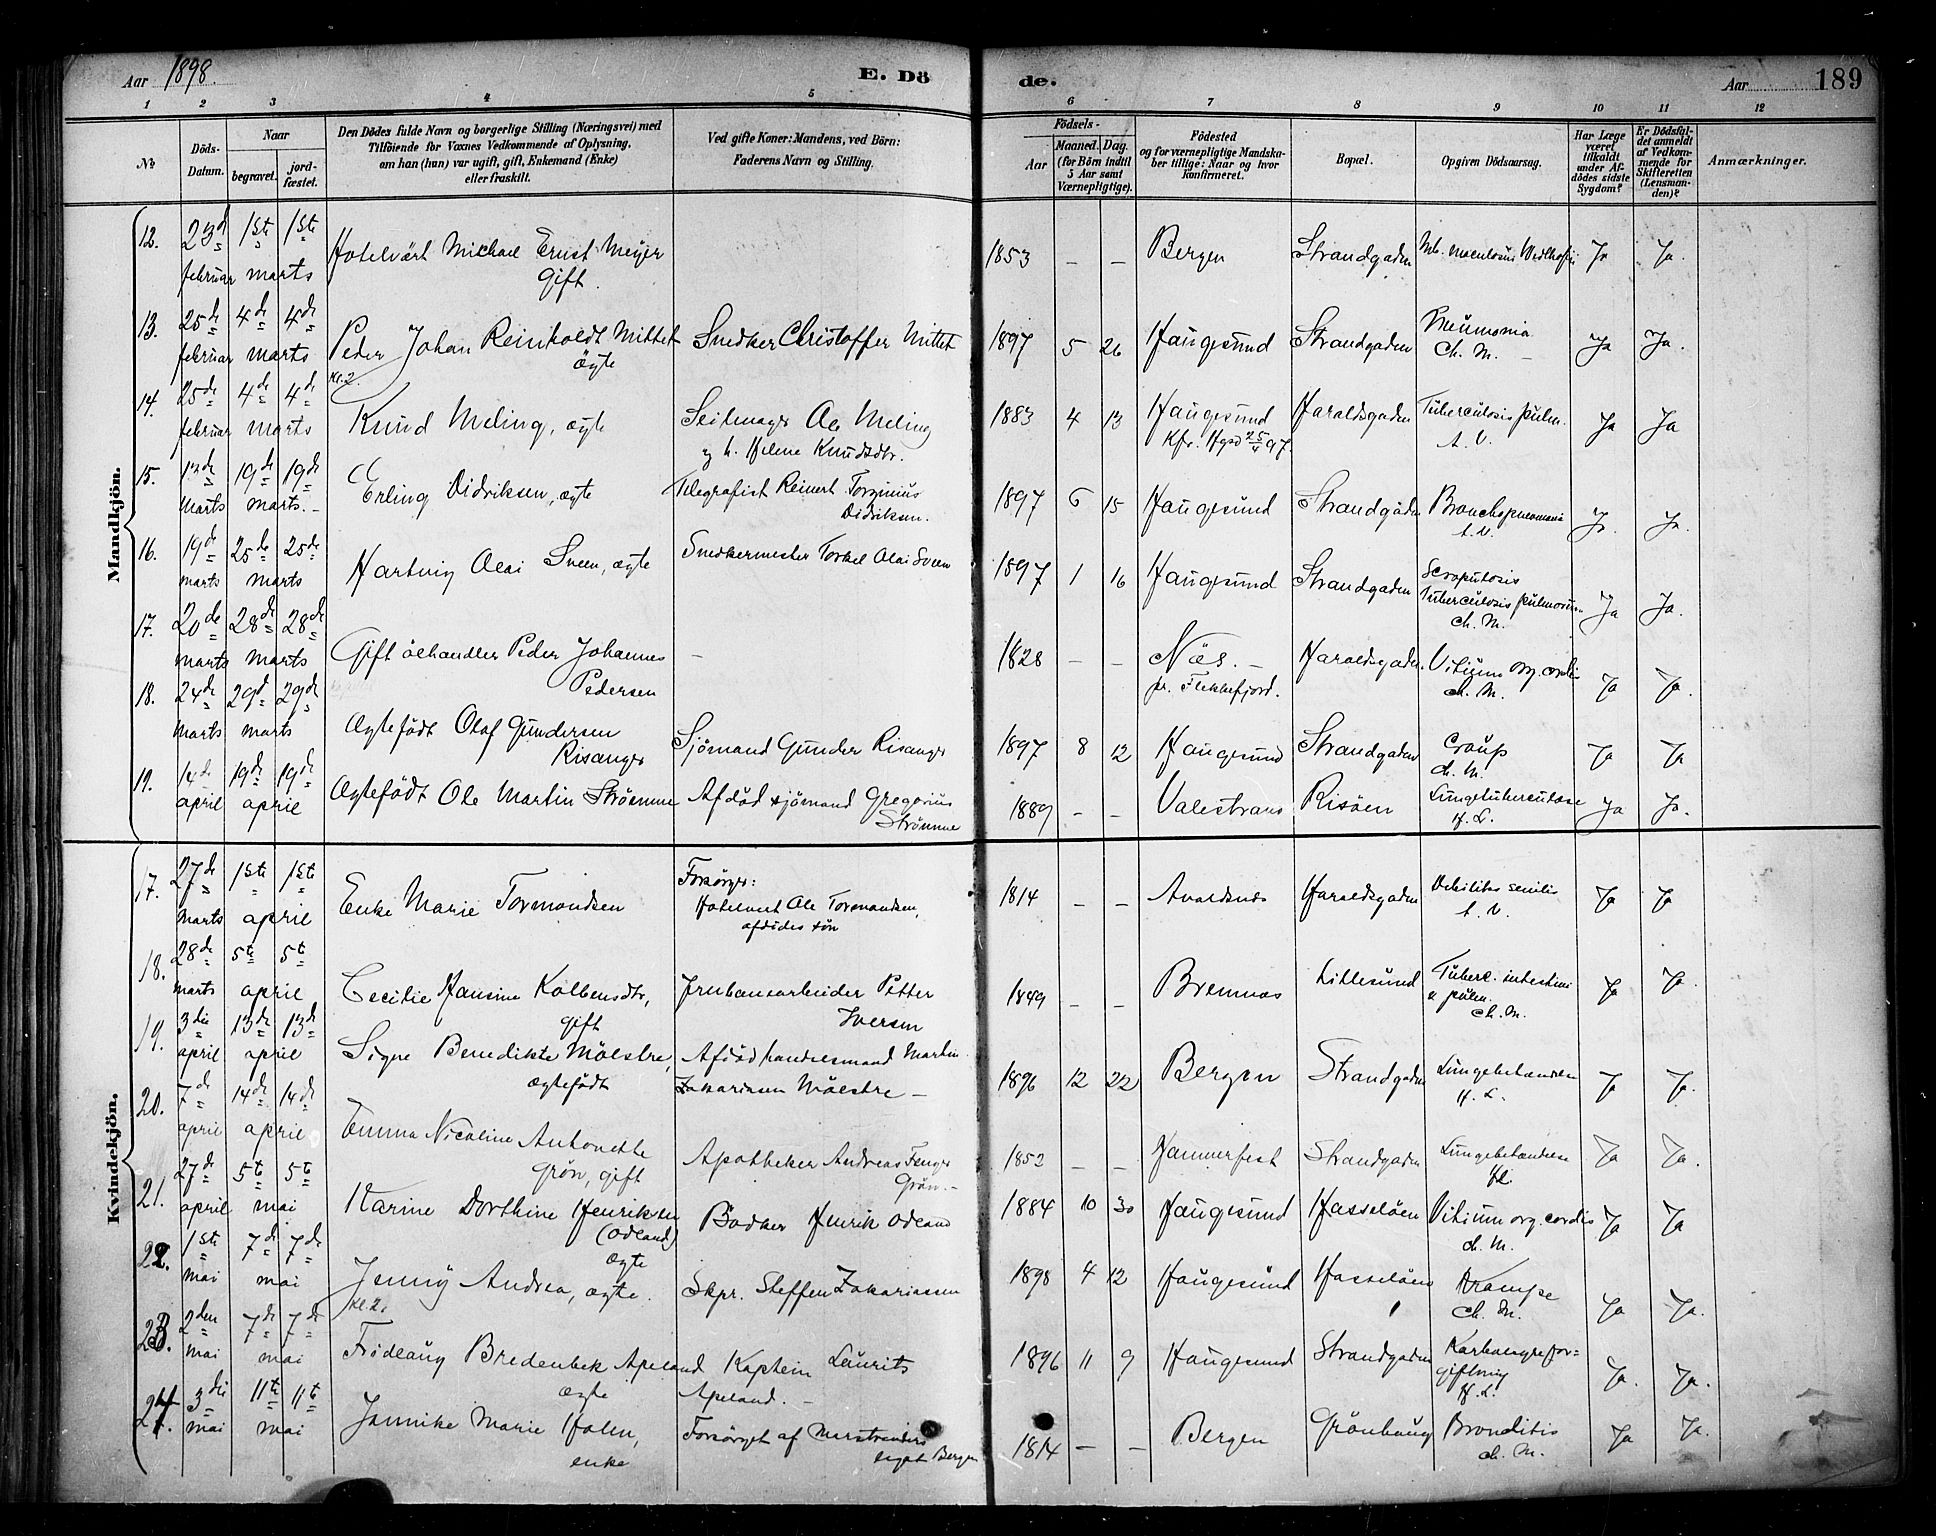 Aar 1898. E. Dö de. Aar 189
1 2 3 4 5 6 7 8 9 10 11 12
№ Döds-Datum. Naar begravet. jord-fæstet. Den Dödes fulde Navn og borgerlige Stilling (Næringsvei) med Tilföiende för Vaxnes Vedkommende af Oplysning, om han (hun) var ugift, gift, Enkemand (Enke) eller fraskilt. Ved gifte Koner: Mandens, ved Börn: Faderens Navn og Stilling. Födsels- Aar Maaned. Dag. (for Börn indtil 5 Aar samt Værnepligtige). Födested og for værnepligtige Mandskaber tillige: Naar og hvor konfirmeret. Bopæl. Opgiven Dödsaarsag. Har Læge været tilkaldt under Afdödes sidste Sygdom? Er Dödsfaldet anmeldt af Vedkommende for Skifteretten (Lensmanden)? Anmærkninger.
Mandkjön.
12. 23d februar 1ste marts 1ste Hotelvärt Michael Ernst Meyer gift. 1853 – – Bergen Strandgaden Mb. maculosus Werlhofii Ja Ja.
13. 25de februar 4de marts 4de Peder Johan Reinholdt Mittet ägte Snedker Christoffer Mittet 1897 5 26 Haugesund Strandgaden Pneumonia Ch. M. – Ja Ja.
14. 25de februar 4de marts 4de Kl. 2. Knud Meling, ægte Seilmager Ole Meling og h. Helene Knudsdtr. 1883 4 13 Haugesund Kfr. Hgsd 25/4 97. Haraldsgaden Tuberculosis pulm. t. V. Ja Ja
15. 13de marts 19de marts. 19de Erling Didriksen, ægte Telegrafist Reinert Torginius Didriksen. 1897 6 15 Haugesund Strandgaden Bronchopneumonia t. V. Ja. Ja.
16. 19de marts 25de marts 25de Hartvig Olai Sveen, ægte Snedkermester Torkel Olai Sveen 1897 1 16 Haugesund Strandgaden Tuberculosis pulmonum ch. M. Ja Ja.
17. 20de marts 28de marts 28de Gift ölhandler Peder Johannes Pedersen – 1828 – – Näs. – pr. Flekkefjord. Haraldsgaden. Vitium org. cordis ch. M. Ja Ja.
18. 24de marts 29d marts 29de Ægtefödt Olaf Gundersen Risanger Sjömand Gunder Risanger 1897 8 12 Haugesund Strandgaden Croup ch. M. Ja Ja
19. 14de april 19de april 19de Ægtefödt Ole Martin Strömme Afdöd sjömand Gregorius Strömme 1889 – – Valestrand Risöen Lungetuberculose H. L. Ja Ja.
Kvindekjön.
17. 27de marts 1ste april 1ste Enke Marie Tormondsen Forsörger: Hotelvert Ole Tormondsen, afdödes sön 1814 – – Avaldsnes Haraldsgaden Debilitas senilis t. V. Ja Ja
18. 28de marts 5te april 5te Cecilie Hansine Kolbensdtr, gift Jrnbanearbeider Petter Iversen 1849 – – Bremnes Lillesund Tuberc. intestini & pulm. ch. M. Ja Ja.
19. 3die april 13de april 13de Signe Benedikte Mölstre, ægtefödt Afdöd handelsmand Martin Zakariasen Mölstre – 1896 12 22 Bergen Strandgaden Lungebetændelse H. L. Ja Ja.
20. 7de april 14de april 14de Emma Nicoline Antonette Grön, gift Apotheker Andreas Fenger Grön. – 1852 – – Hammerfest Strandgaden Lungebetændelse HL. Ja Ja.
21. 27de april 5te mai 5te Karine Dorthine Henriksen (Odland) ægte Bödker Henrik Odland 1884 10 30 Haugesund Hasselöen Vitium org. cordis ch. M. Ja Ja
22. 1ste mai 7de mai 7de Jenny Andrea, ægte. Skpr. Steffen Zakariassen 1898 4 12 Haugesund Hasselöen Krampe ch. M. Ja Ja.
23. 2den mai 7de mai 7de Kl. 2. Fridlaug Bredenbek Apeland ægte Kaptein Laurits Apeland. – 1896 11 9 Haugesund Strandgaden Karbolsyreforgiftning H. L. Ja. Ja.
24. 3die mai 11te mai 11te Jannike Marie Holm, enke Forsörget af Marstranders legat Bergen 1814 – – Bergen Grönhaug Bronchitis ch. M. Ja Ja.